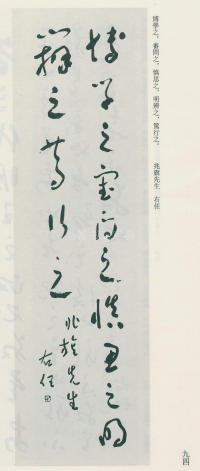 博學之，審問之，慎思之，明辨之，篤行之。　兆旗先生　右任
博学之審问之慎思之明
辨之篤行之
兆旗先生
右任
九四